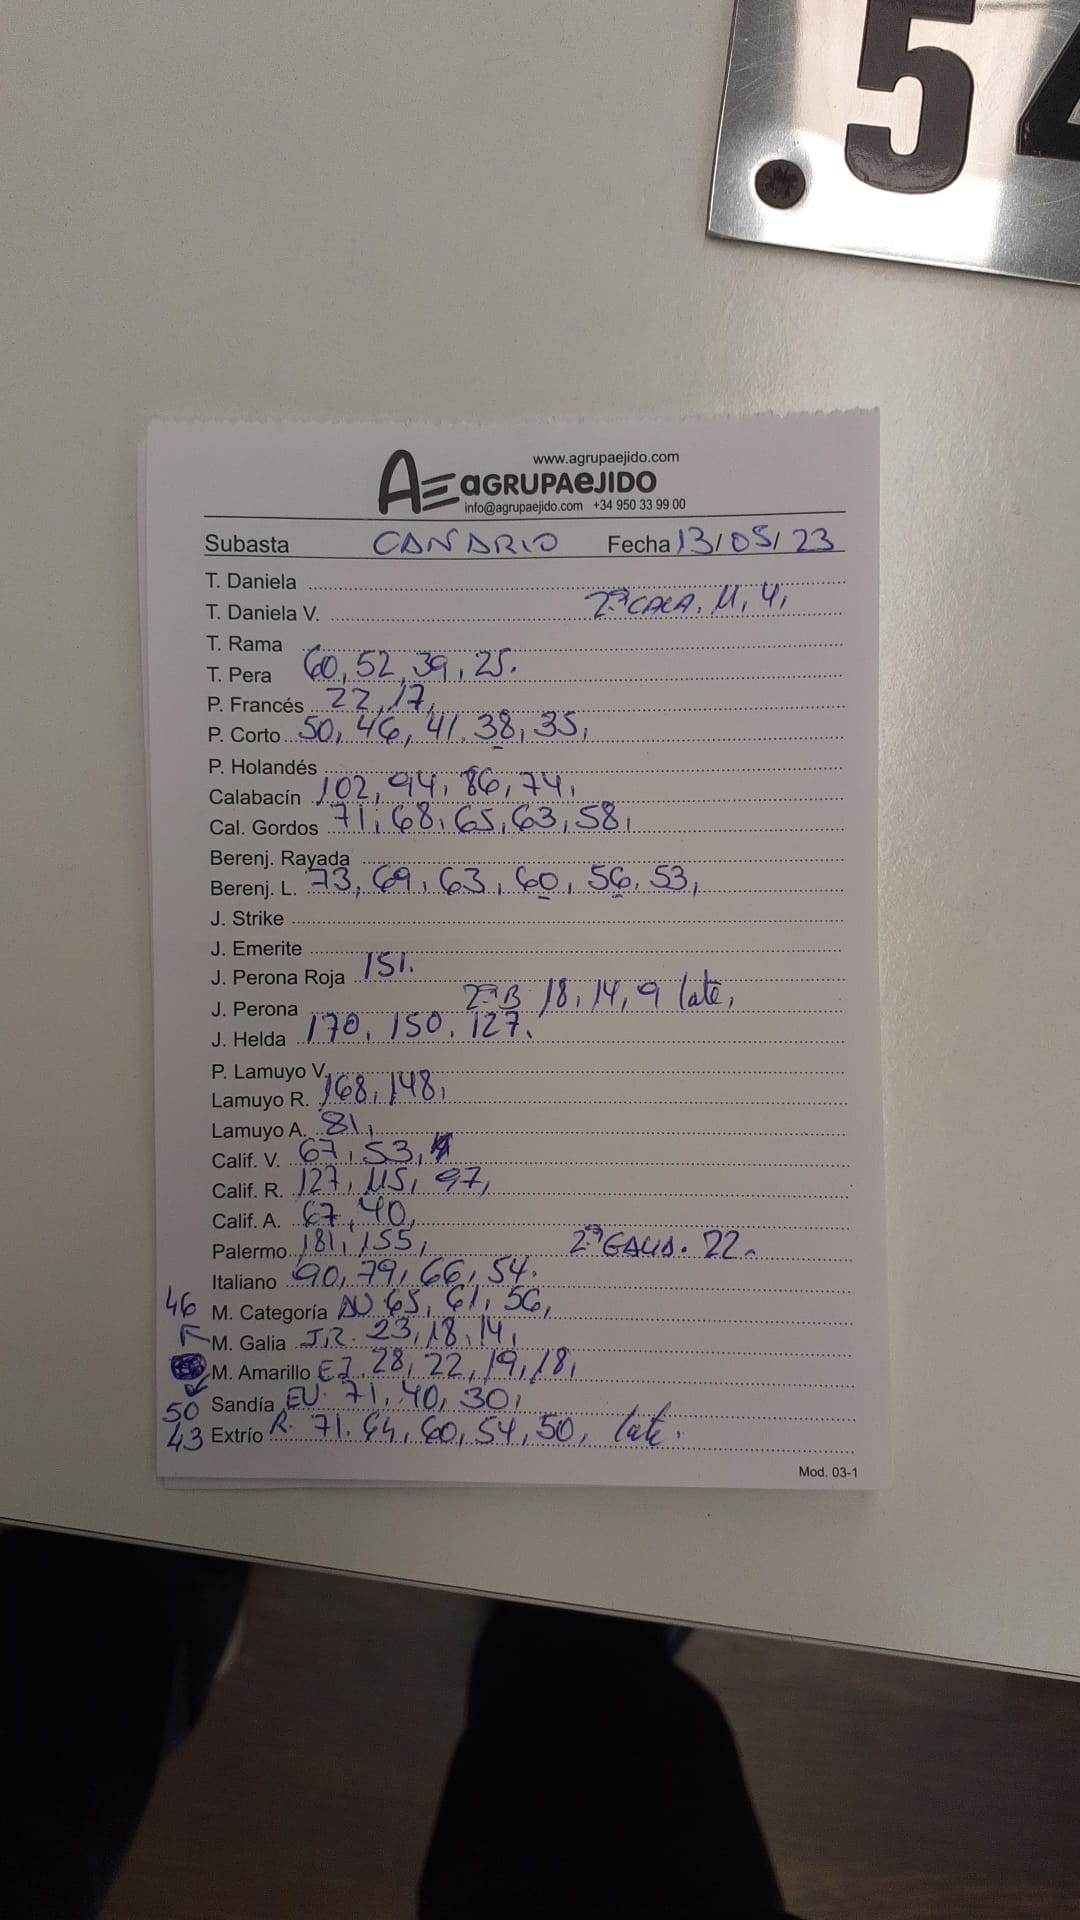 54
www.agrupaejido.com
AE aGRUPAeJIDO
info@agrupaejido.com +34 950 33 99 00
Subasta CANARIO Fecha 13/05/23
T. Daniela
T. Daniela V. 2ª CALA. 11, 4,
T. Rama
T. Pera 60, 52, 39, 25.
P. Francés 22, 17,
P. Corto 50, 46, 41, 38, 35,
P. Holandés
Calabacín 102, 94, 86, 74,
Cal. Gordos 71, 68, 65, 63, 58,
Berenj. Rayada
Berenj. L. 73, 69, 63, 60, 56, 53,
J. Strike
J. Emerite
J. Perona Roja 151.
J. Perona 2ª B 18, 14, 9 late,
J. Helda 170, 150, 127.
P. Lamuyo V.
Lamuyo R. 168, 148,
Lamuyo A. 81,
Calif. V. 67, 53,
Calif. R. 127, 115, 97,
Calif. A. 67, 40,
Palermo 181, 155, 2ª GALIA. 22.
Italiano 90, 79, 66, 54.
46 M. Categoría NU 65, 61, 56,
M. Galia J.R. 23, 18, 14,
M. Amarillo EJ. 28, 22, 19, 18,
50 Sandía EU. 71, 40, 30,
43 Extrío R. 71, 64, 60, 54, 50, late.
Mod. 03-1